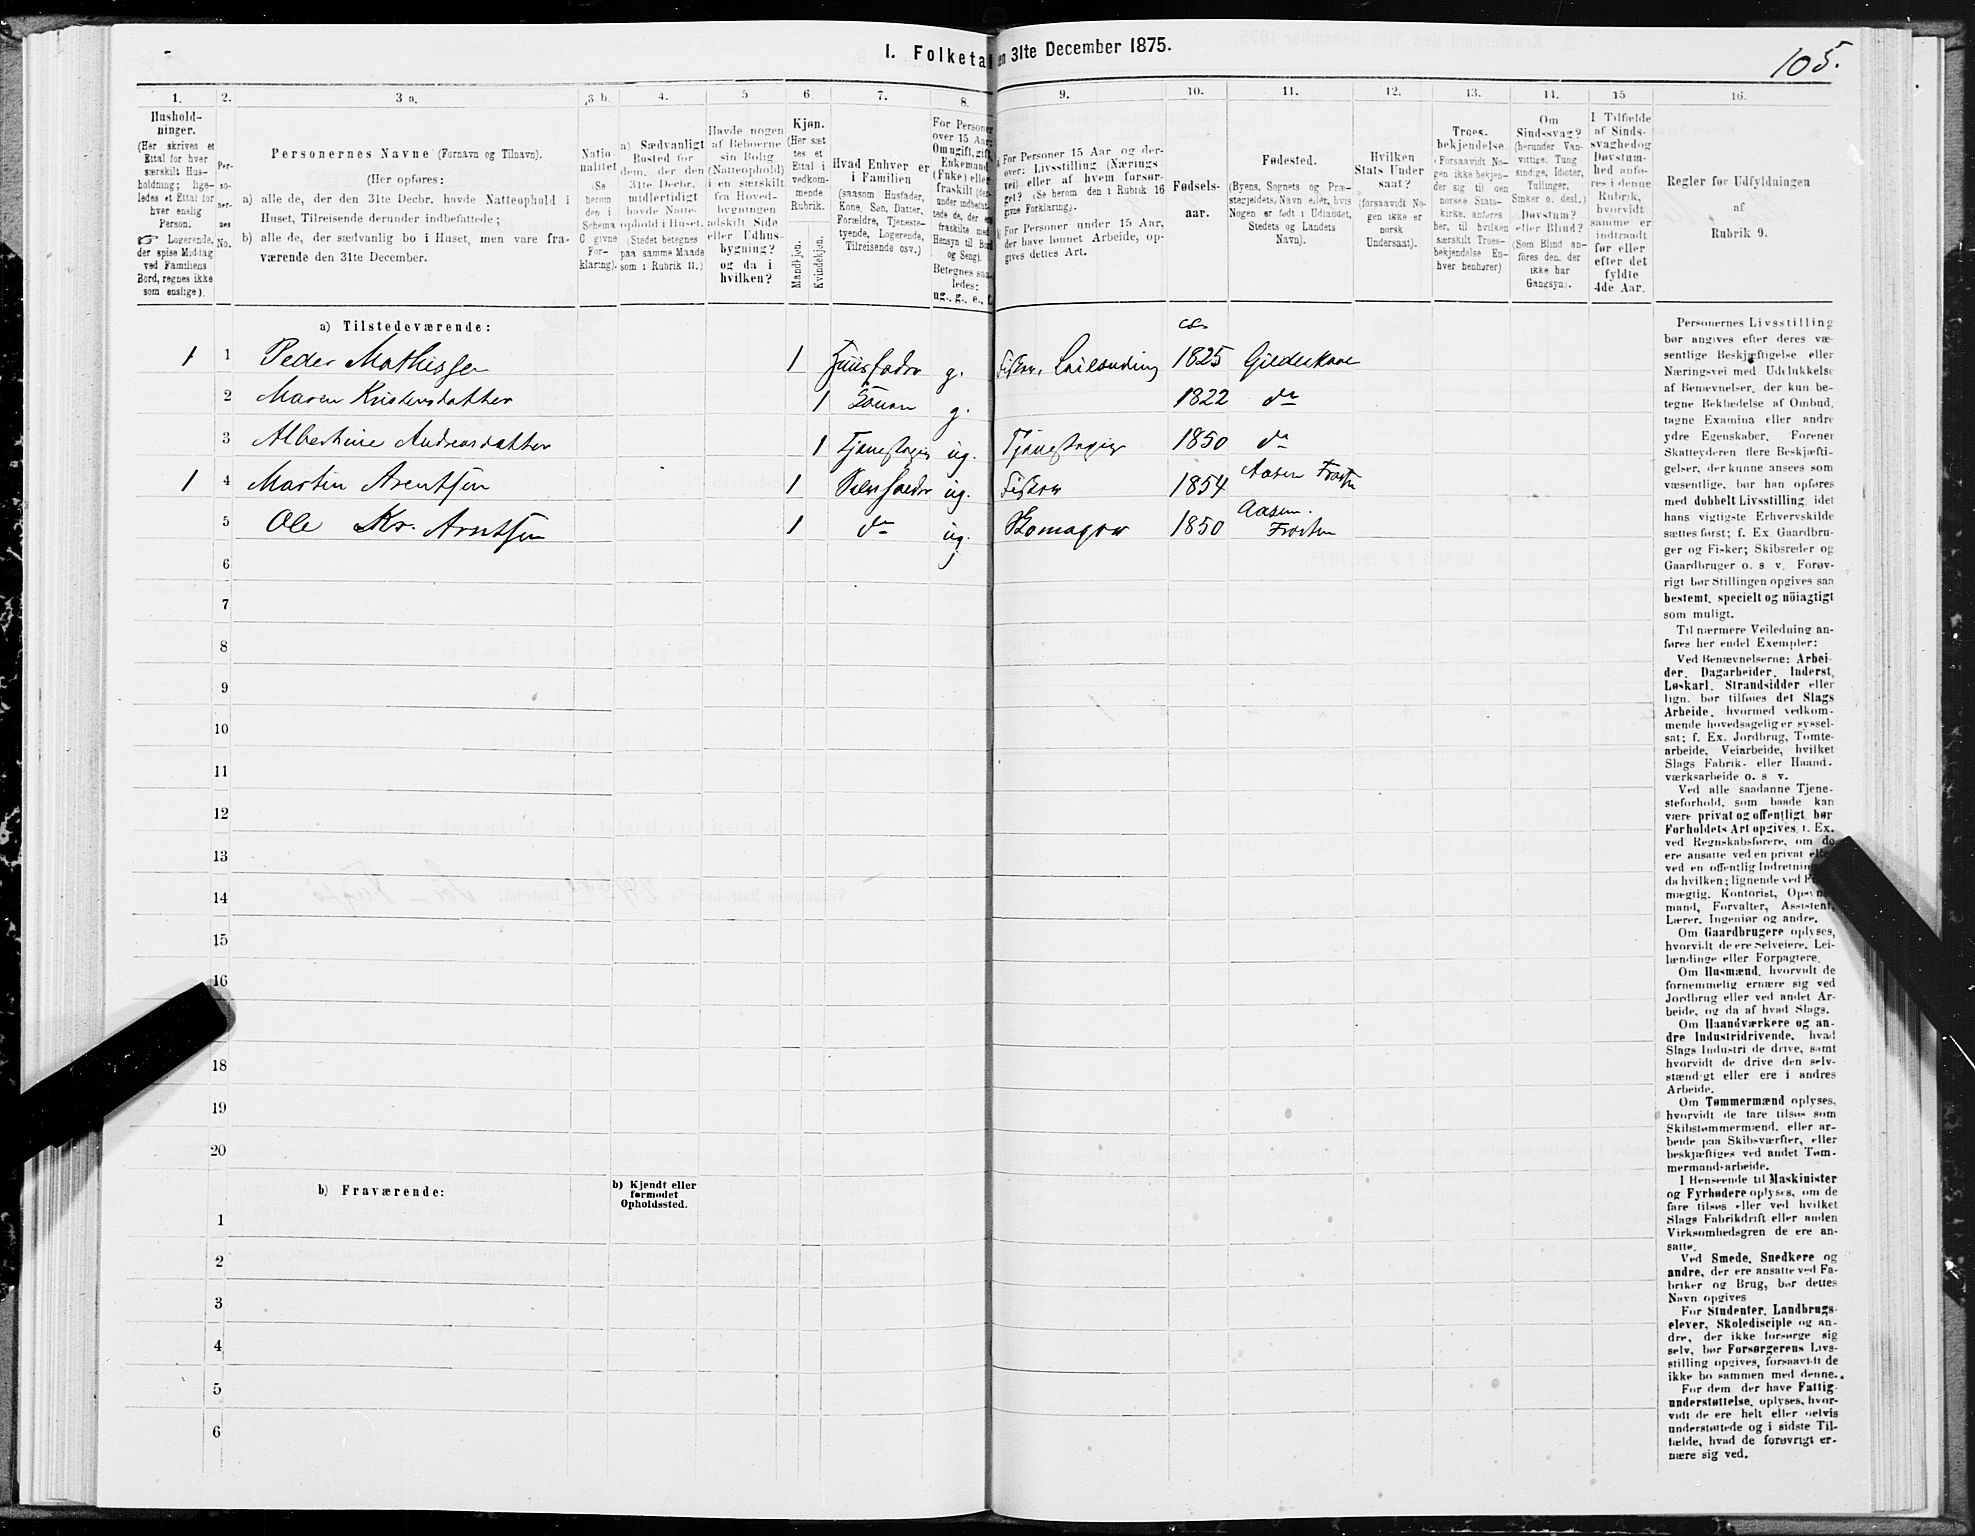 I. Folketa
en 31te December 1875.
105.
1.
2.
3 a.
3 b.
4.
5
6.
7.
8.
9.
10.
11.
12.
13.
14.
15
16.
Hushold-
ninger.
(Her skrives et
Ettal for hver
særskilt Hus-
holdning; lige-
ledes et Ettal for
hver enslig
Person.
☞ Logerende,
der spise Middag
ved Familiens
Bord, regnes ikke
som enslige).
Per-
so-
ner-
nes
No.
Personernes Navne (Fornavn og Tilnavn).
(Her opføres:
a) alle de, der den 31te Decbr. havde Natteophold i
Huset, Tilreisende derunder indbefattede;
b) alle de, der sædvanlig bo i Huset, men vare fra-
værende den 31te December.
Natio-
nalitet
(Se
herom
den i
Schema
C givne
For-
klaring).
a) Sædvanligt
Bosted for
dem, der den
31te Decbr.
midlertidigt
havde Natte-
ophold i Huset.
(Stedet betegnes
paa samme Maade
som i Rubrik 11.)
Havde nogen
af Beboerne
sin Bolig
(Natteophold)
i en særskilt
fra Hoved-
bygningen
adskilt Side
eller Udhus-
bygning?
og da i
hvilken?
Kjøn.
(Her sæt
tes et
Ettal i
vedkom-
mende
Rubrik.
Mandkjøn.
Kvindekjøn.
Hvad Enhver er
i Familien
(saasom Husfader,
Kone, Søn, Datter,
Forældre, Tjeneste-
tyende, Logerende,
Tilreisende osv.)
For Personer
over 15 Aar
Om ugift, gift,
Enkemand
(Enke) eller
fraskilt
Betegnes saa-
ledes:
ug., g., e.,
For Personer 15 Aar og der-
over: Livsstilling (Nærings
vei) eller af hvem forsør-
get? (Se herom den i Rubrik 16
givne Forklaring).
For Personer under 15 Aar,
der have lønnet Arbeide, op-
gives dettes Art.
Fødsels-
aar.
Fødested.
(Byens, Sognets og Præ-
stegjeldets, Navn eller, hvis
Nogen er født i Udlandet,
Stedets og Landets
Navn).
Hvilken
Stats Under
saat?
(forsaavidt No-
gen ikke er
norsk
Undersaat).
Troes-
bekjendelse.
(Forsaavidt No-
gen ikke bekjen-
der sig til den
norske Stats-
kirke, anføres
her, til hvilken
særskilt Troes-
bekjendelse En-
hver henhører)
Om
Sindssvag?
(herunder Van-
vittige, Tung
sindige, Idioter,
Tullinger,
Sinker o. desl.)
Døvstum?
eller Blind?
(Som Blind an-
føres den, der
ikke har
Gangsyn).
I Tilfælde
af Sinds-
svaghed og
Døvstum-
hed anfø-
res i denne
Rubrik,
hvorvidt
samme er
indtraadt
før eller
efter det
fyldte
4de Aar.
Regler for Udfyldningen
af
Rubrik 9.
a) Tilstedeværende:
1 1 Peder Mathissen 1 Huusfader g. 1825 Gildeskaal
2 Maren Kristensdatter 1 Konen g. 1822 do
3 Albertine Andreasdatter 1 ug. 1850 do
1 4 Martin Arentsen 1 ug. Fisker 1854 Aasen Frosten
5 Ole Kr. Arntsen 1 do ug. 1850 Aasen. Frosten
6
7
8
9
10
11
12
13
14
15
16
18
19
20
b) Fraværende:
b) Kjendt eller
formodet
Opholdssted.
1
2
3
4
5
6
Personernes Livsstilling
bør angives efter deres væ-
sentlige Beskjæftigelse eller
Næringsvei med Udelukkelse
af Benævnelser, der kun be-
tegne Beklædelse af Ombud,
tagne Examina eller andre
ydre Egenskaber. Forener
Skatteyderen flere Beskjæfti-
gelser, der kunne ansees som
væsentlige, bør han opføres
med dobbelt Livsstilling, idet
hans vigtigste Erhvervskilde
sættes først; f. Ex. Gaardbru-
ger og Fisker; Skibsreder og
Gaardbruger o. s v. Forøv-
rigt bør Stillingen opgives saa
bestemt, specielt og nöiagtigt
som muligt.
Til nærmere Veiledning an-
føres her endel Exempler:
Ved Benævnelserne: Arbei-
der, Dagarbeider, Inderst,
Løskarl, Strandsidder eller
lign. bør tilføies det Slags
Arbeide, hvormed vedkom-
mende hovedsagelig er syssel-
sat; f. Ex. Jordbrug, Tomte-
arbeide, Veiarbeide, hvilket
Slags Fabrik- eller Haand-
værksarbeide o. s v.
Ved alle saadanne Tjene-
steforhold, som baade kan
være privat og offentligt, bør
Forholdets Art opgives, f. Ex.
ved Regnskabsførere, om de
ere ansatte ved en privat
ved en offentlig Indretning
da hvilken; lignende ved
mægtig, Kontorist, Opsyns-
mand, Forvalter, Assistent,
Lærer, Ingeniør og andre.
Om Gaardbrugere oplyses,
hvorvidt de ere Selveiere, Lei-
lændinge eller Forpagtere.
Om Husmænd, hvorvidt de
fornemmelig ernære sig ved
Jordbrug eller ved andet Ar-
beide, og da af hvad Slags.
Om Haandværkere og an-
dre Industridrivende, hvad
Slags Industri de drive, samt
hvorvidt de drive den selv-
stændigt eller ere i andres
Arbeide.
Om Tømmermænd oplyses,
hvorvidt de fare tilsøs som
Skibstømmermænd, eller ar-
beide paa Skibsværfter, eller
beskjæftiges ved andet Tøm-
mermandsarbeide.
I Henseende til Maskinister
og Fyrbødere oplyses, om de
fare tilsøs eller ved hvilket
Slags Fabrikdrift eller anden
Virksomhedsgren de ere an-
satte.
Ved Smede, Snedkere og
andre, der ere ansatte ved Fa-
briker og Brug, bør dettes
Navn opgives
For Studenter, Landbrugs-
elever, Skoledisciple og an-
dre, der ikke forsørge sig
selv, bør Forsørgerens Livs-
stilling opgives, forsaavidt de
ikke bo sammen med denne.
For dem der have Fattig-
understøttelse, oplyses, hvor-
vidt de ere helt eller delvis
understøttede og i sidste Til-
fælde, hvad de forøvrigt er-
nære sig ved.